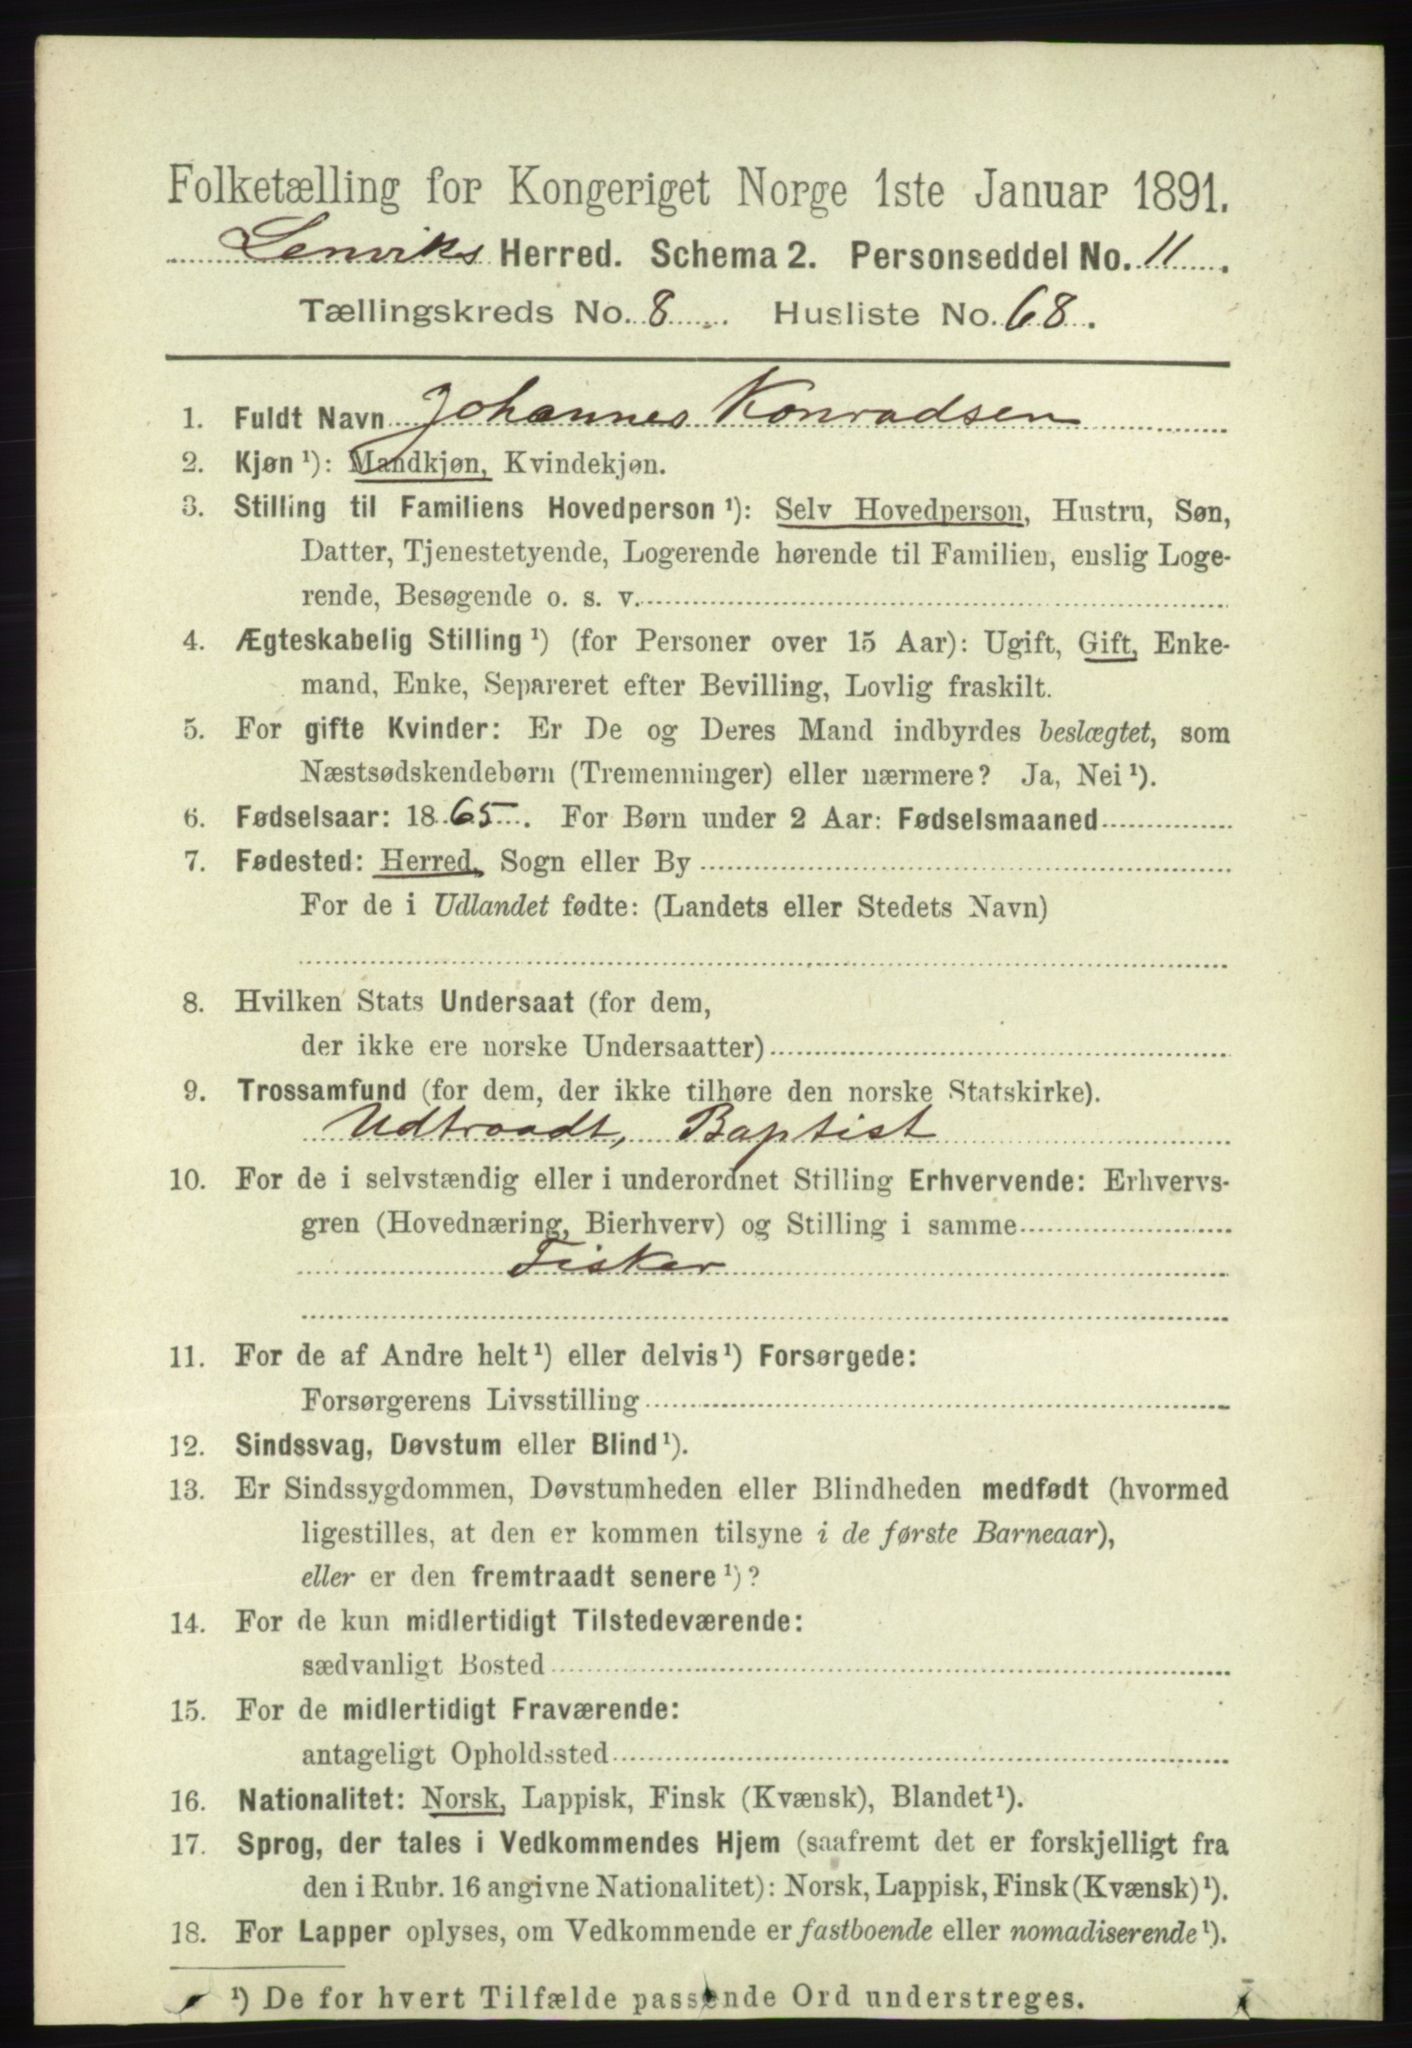 Folketælling for Kongeriget Norge 1ste Januar 1891.
Lenviks Herred. Schema 2. Personseddel No. 11.
Tællingskreds No. 8. Husliste No. 68.
1. Fuldt Navn Johannes Konradsen
2. Kjøn ¹): Mandkjøn, Kvindekjøn.
3. Stilling til Familiens Hovedperson ¹): Selv Hovedperson, Hustru, Søn,
Datter, Tjenestetyende, Logerende hørende til Familien, enslig Loge-
rende, Besøgende o. s. v.
4. Ægteskabelig Stilling ¹) (for Personer over 15 Aar): Ugift, Gift, Enke-
mand, Enke, Separeret efter Bevilling, Lovlig fraskilt.
5. For gifte Kvinder: Er De og Deres Mand indbyrdes beslægtet, som
Næstsødskendebørn (Tremenninger) eller nærmere? Ja, Nei ¹).
6. Fødselsaar: 1865. For Børn under 2 Aar: Fødselsmaaned
7. Fødested: Herred, Sogn eller By
For de i Udlandet fødte: (Landets eller Stedets Navn)
8. Hvilken Stats Undersaat (for dem,
der ikke ere norske Undersaatter)
9. Trossamfund (for dem, der ikke tilhøre den norske Statskirke).
Udtraadt, Baptist
10. For de i selvstændig eller i underordnet Stilling Erhvervende: Erhvervs-
gren (Hovednæring, Bierhverv) og Stilling i samme
Fisker
11. For de af Andre helt ¹) eller delvis ¹) Forsørgede:
Forsørgerens Livsstilling
12. Sindssvag, Døvstum eller Blind ¹).
13. Er Sindssygdommen, Døvstumheden eller Blindheden medfødt (hvormed
ligestilles, at den er kommen tilsyne i de første Barneaar),
eller er den fremtraadt senere ¹)?
14. For de kun midlertidigt Tilstedeværende:
sædvanligt Bosted
15. For de midlertidigt Fraværende:
antageligt Opholdssted
16. Nationalitet: Norsk, Lappisk, Finsk (Kvænsk), Blandet ¹).
17. Sprog, der tales i Vedkommendes Hjem (saafremt det er forskjelligt fra
den i Rubr. 16 angivne Nationalitet): Norsk, Lappisk, Finsk (Kvænsk) ¹).
18. For Lapper oplyses, om Vedkommende er fastboende eller nomadiserende ¹).
¹) De for hvert Tilfælde passende Ord understreges.